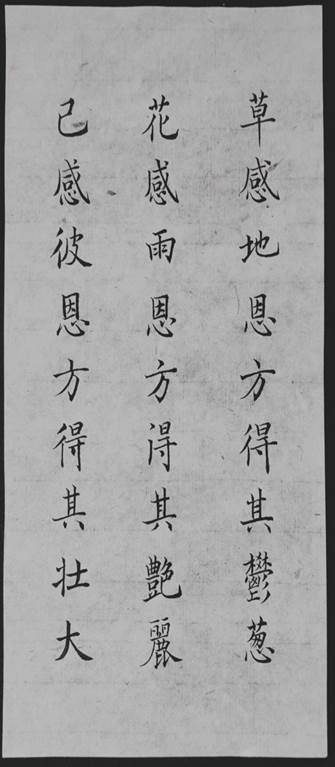 草感地恩方得其鬱葱
花感雨恩方得其艷麗
己感彼恩方得其壯大